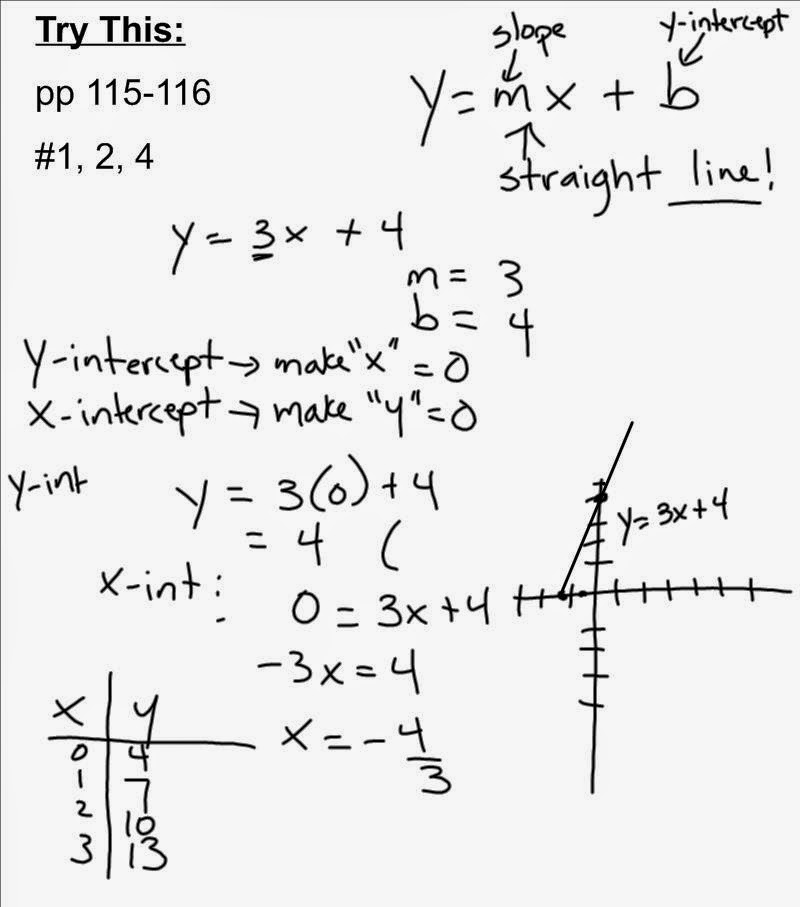 Try This:
pp 115-116
#1, 2, 4
slope
y-intercept
y = mx + b
straight line!
y = 3x + 4
m = 3
b = 4
y-intercept → make "x" = 0
x-intercept → make "y" = 0
y-int
y = 3(0) + 4
= 4 (
x-int:
0 = 3x + 4
-3x = 4
x = -4/3
y = 3x + 4
x | y
0 | 4
1 | 7
2 | 10
3 | 13